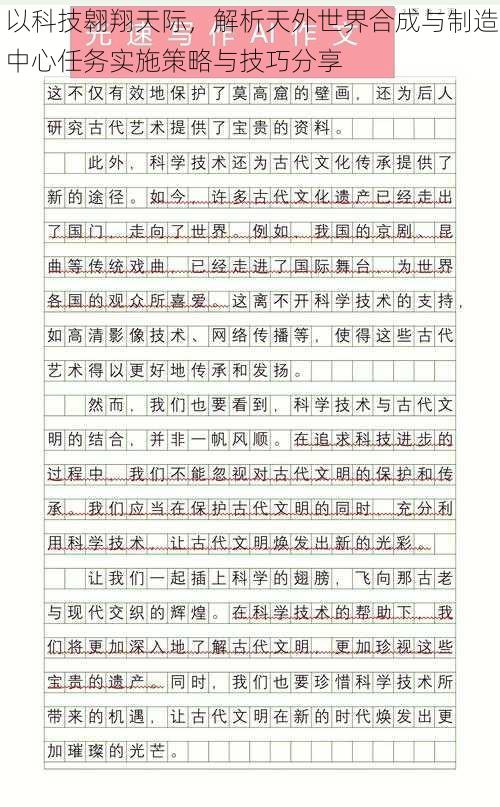 以科技翱翔天际，解析天外世界合成与制造
中心任务实施策略与技巧分享
光速写作AI作文
这不仅有效地保护了莫高窟的壁画，还为后人
研究古代艺术提供了宝贵的资料。
此外，科学技术还为古代文化传承提供了
新的途径。如今，许多古代文化遗产已经走出
了国门，走向了世界。例如，我国的京剧、昆
曲等传统戏曲，已经走进了国际舞台，为世界
各国的观众所喜爱。这离不开科学技术的支持，
如高清影像技术、网络传播等，使得这些古代
艺术得以更好地传承和发扬。
然而，我们也要看到，科学技术与古代文
明的结合，并非一帆风顺。在追求科技进步的
过程中，我们不能忽视对古代文明的保护和传
承。我们应当在保护古代文明的同时，充分利
用科学技术，让古代文明焕发出新的光彩。
让我们一起插上科学的翅膀，飞向那古老
与现代交织的辉煌。在科学技术的帮助下，我
们将更加深入地了解古代文明，更加珍视这些
宝贵的遗产。同时，我们也要珍惜科学技术所
带来的机遇，让古代文明在新的时代焕发出更
加璀璨的光芒。